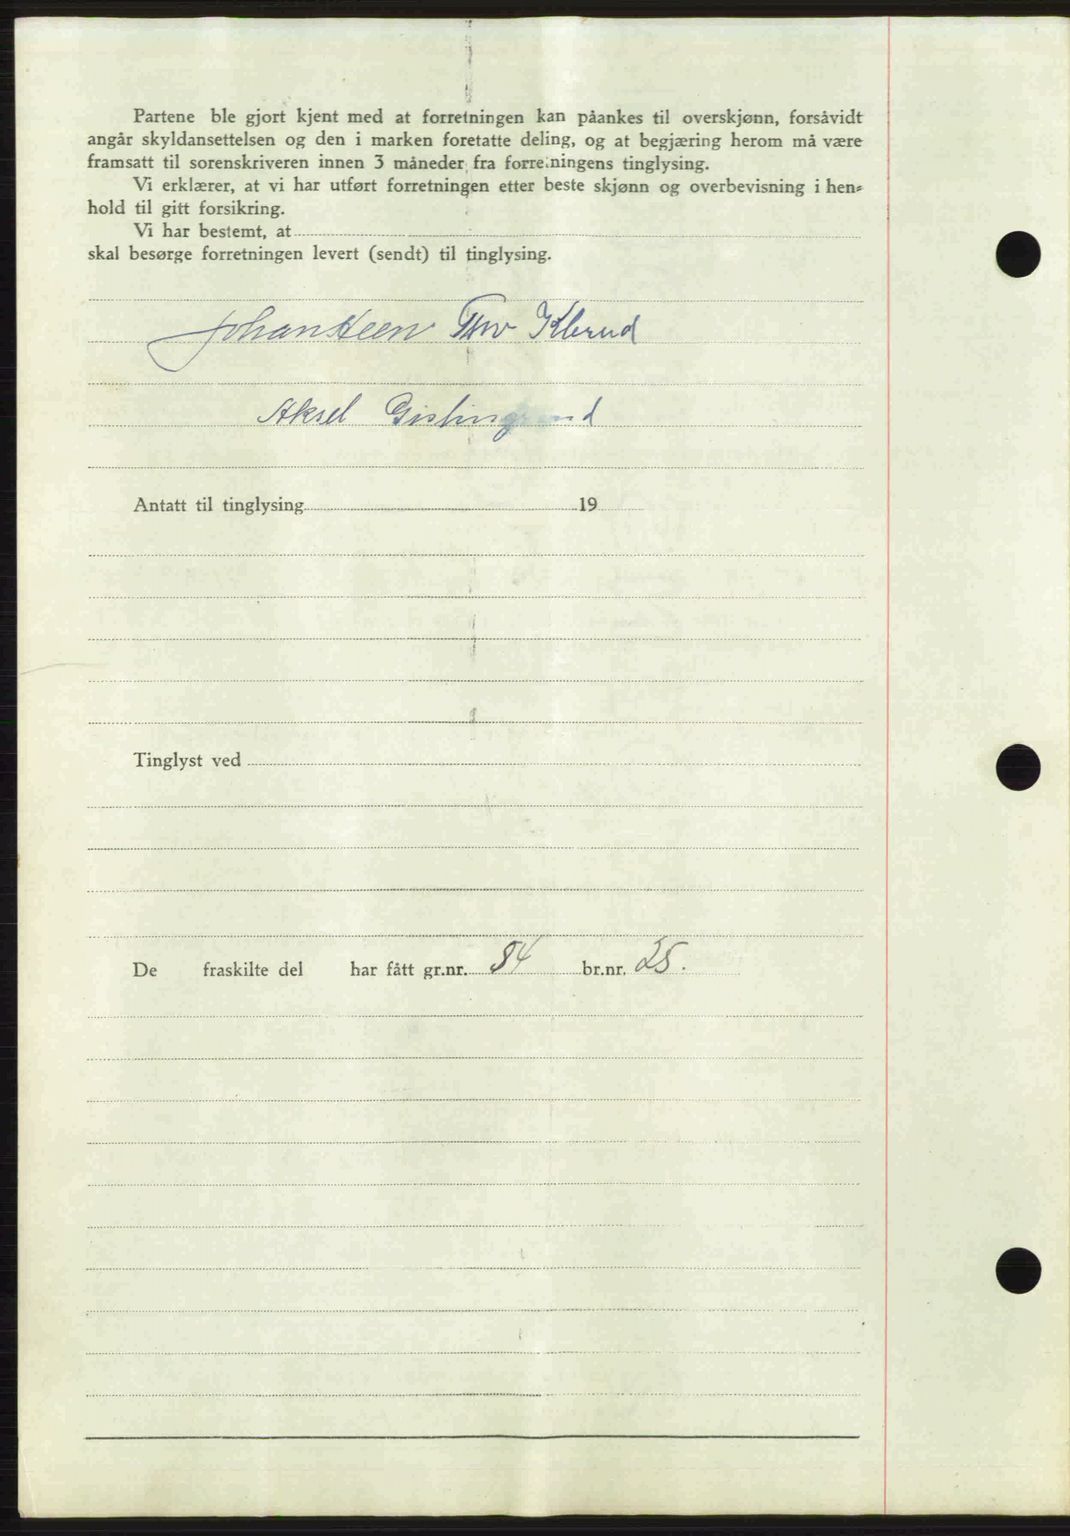 Partene ble gjort kjent med at forretningen kan påankes til overskjønn, forsåvidt
angår skyldansettelsen og den i marken foretatte deling, og at begjæring herom må være
framsatt til sorenskriveren innen 3 måneder fra forretningens tinglysing.
Vi erklærer, at vi har utført forretningen etter beste skjønn og overbevisning i hen-
hold til gitt forsikring.
Vi har bestemt, at
skal besørge forretningen levert (sendt) til tinglysing.
Johan Heen Thv Klerud
Aksel
Antatt til tinglysing 19
Tinglyst ved
De fraskilte del har fått gr.nr. 84 br.nr. 25.